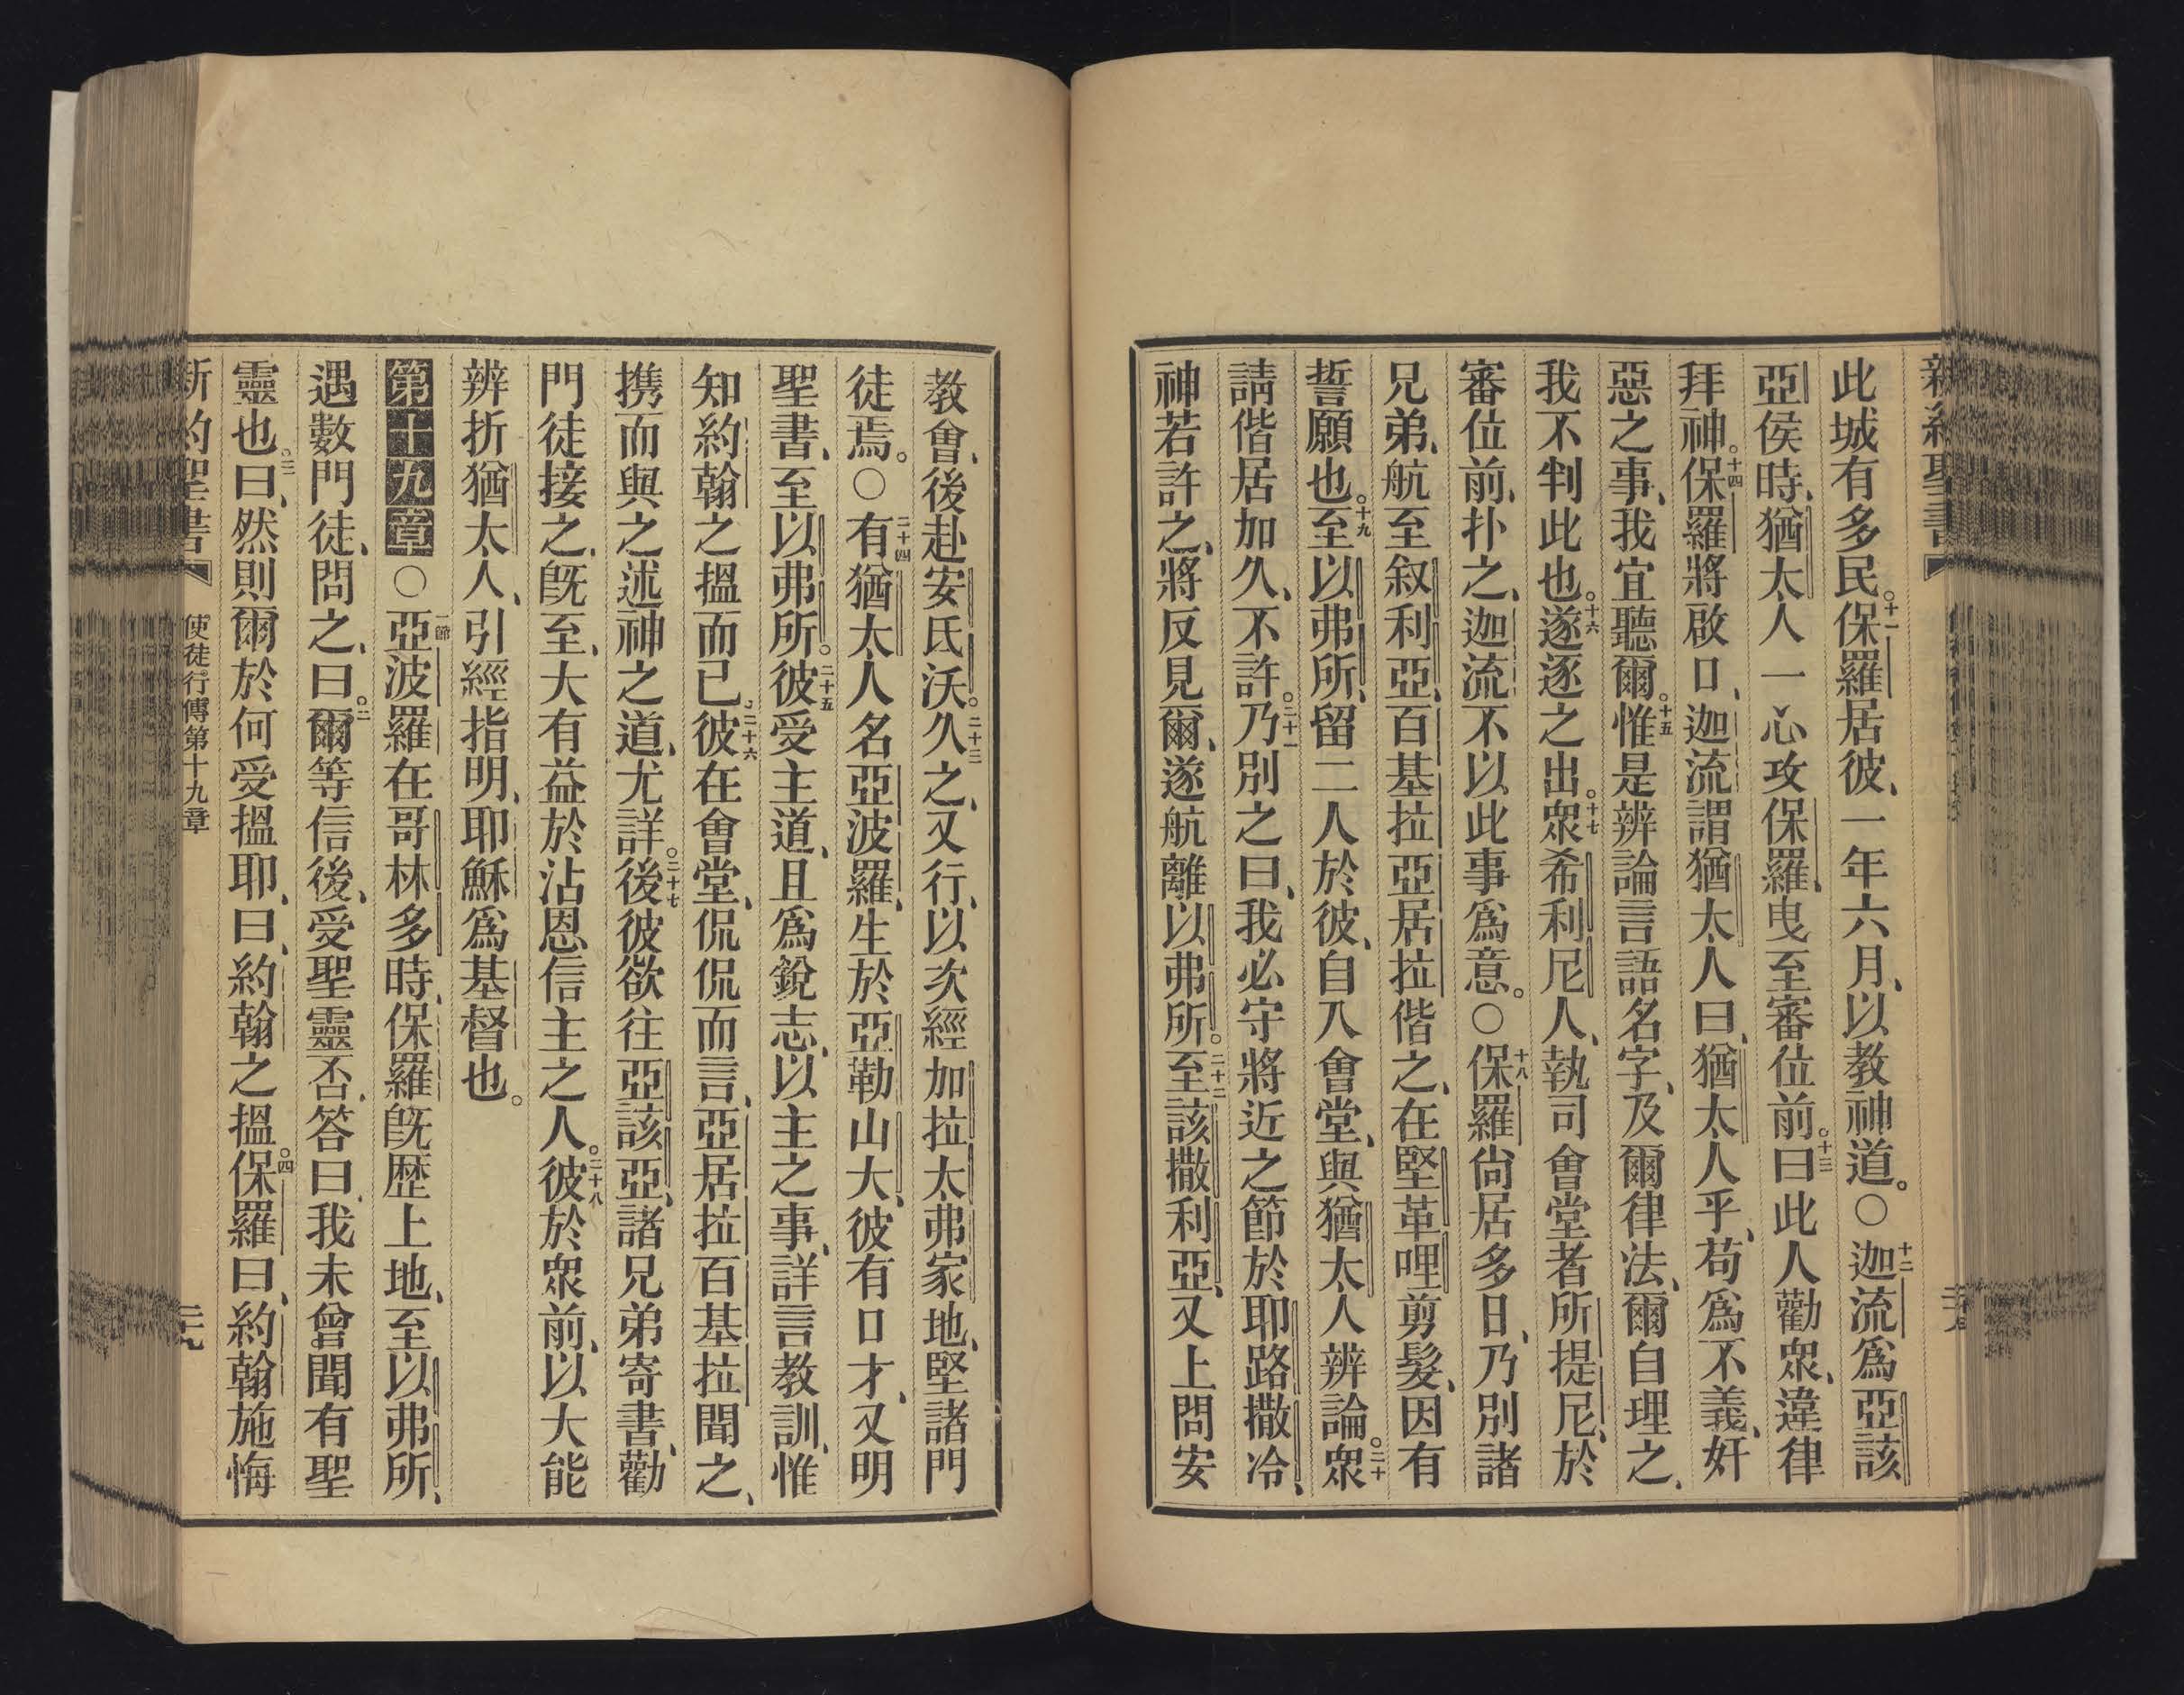 新約聖書
此城有多民。十一保羅居彼、一年六月、以教神道。○十二迦流爲亞該
亞侯時、猶太人一心攻保羅、曳至審位前。十三曰此人勸衆、違律
拜神。十四保羅將啟口、迦流謂猶太人曰、猶太人乎、苟爲不義、奸
惡之事、我宜聽爾。十五惟是辨論言語名字、及爾律法、爾自理之、
我不判此也。十六遂逐之出。十七衆希利尼人、執司會堂者所提尼、於
審位前、扑之、迦流不以此事爲意。○十八保羅尙居多日、乃別諸
兄弟、航至叙利亞、百基拉亞居拉偕之、在堅革哩剪髮、因有
誓願也。十九至以弗所、留二人於彼、自入會堂、與猶太人辨論。二十衆
請偕居加久、不許。二十一乃別之曰、我必守將近之節於耶路撒冷、
神若許之、將反見爾、遂航離以弗所。二十二至該撒利亞、又上問安
教會、後赴安氐沃。二十三久之、又行、以次經加拉太弗家地、堅諸門
徒焉。○二十四有猶太人名亞波羅、生於亞勒山大、彼有口才、又明
聖書、至以弗所。二十五彼受主道、且爲銳志、以主之事、詳言教訓、惟
知約翰之搵而已。二十六彼在會堂、侃侃而言、亞居拉百基拉聞之、
携而與之述神之道、尤詳。二十七後彼欲往亞該亞、諸兄弟寄書、勸
門徒接之、旣至、大有益於沾恩信主之人。二十八彼於衆前、以大能
辨折猶太人、引經指明、耶穌爲基督也。
第十九章○一節亞波羅在哥林多時、保羅旣歷上地、至以弗所、
遇數門徒、問之、曰。二爾等信後、受聖靈否、答曰、我未曾聞有聖
靈也。三曰、然則爾於何受搵耶、曰、約翰之搵。四保羅曰、約翰施悔
新約聖書 使徒行傳第十九章 二十九